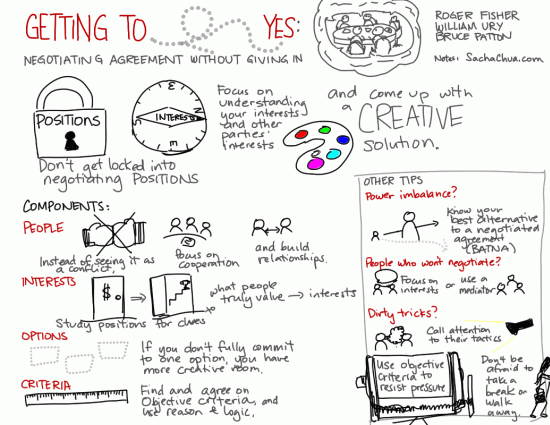 GETTING TO YES:
NEGOTIATING AGREEMENT WITHOUT GIVING IN
ROGER FISHER
WILLIAM URY
BRUCE PATTON
Notes: SachaChua.com
POSITIONS
Don't get locked into
negotiating POSITIONS
N
E
INTERESTS
Focus on
understanding
your interests
and other
parties'
interests
and come up with
a CREATIVE
solution.
COMPONENTS:
PEOPLE
Instead of seeing it as
a conflict,
Focus on
cooperation
and build
relationships.
INTERESTS
$
Study positions for clues
what people
truly value → interests
OPTIONS
If you don't fully commit
to one option, you have
more creative room.
CRITERIA
Find and agree on
Objective criteria, and
use reason & logic.
OTHER TIPS
Power imbalance?
Know your
best alternative
to a negotiated
agreement
(BATNA)
People who won't negotiate?
Focus on
interests
or use a
mediator
Dirty tricks?
Call attention
to their tactics
Use objective
criteria to
resist pressure
Don't be
afraid to
take a
break or
walk
away.